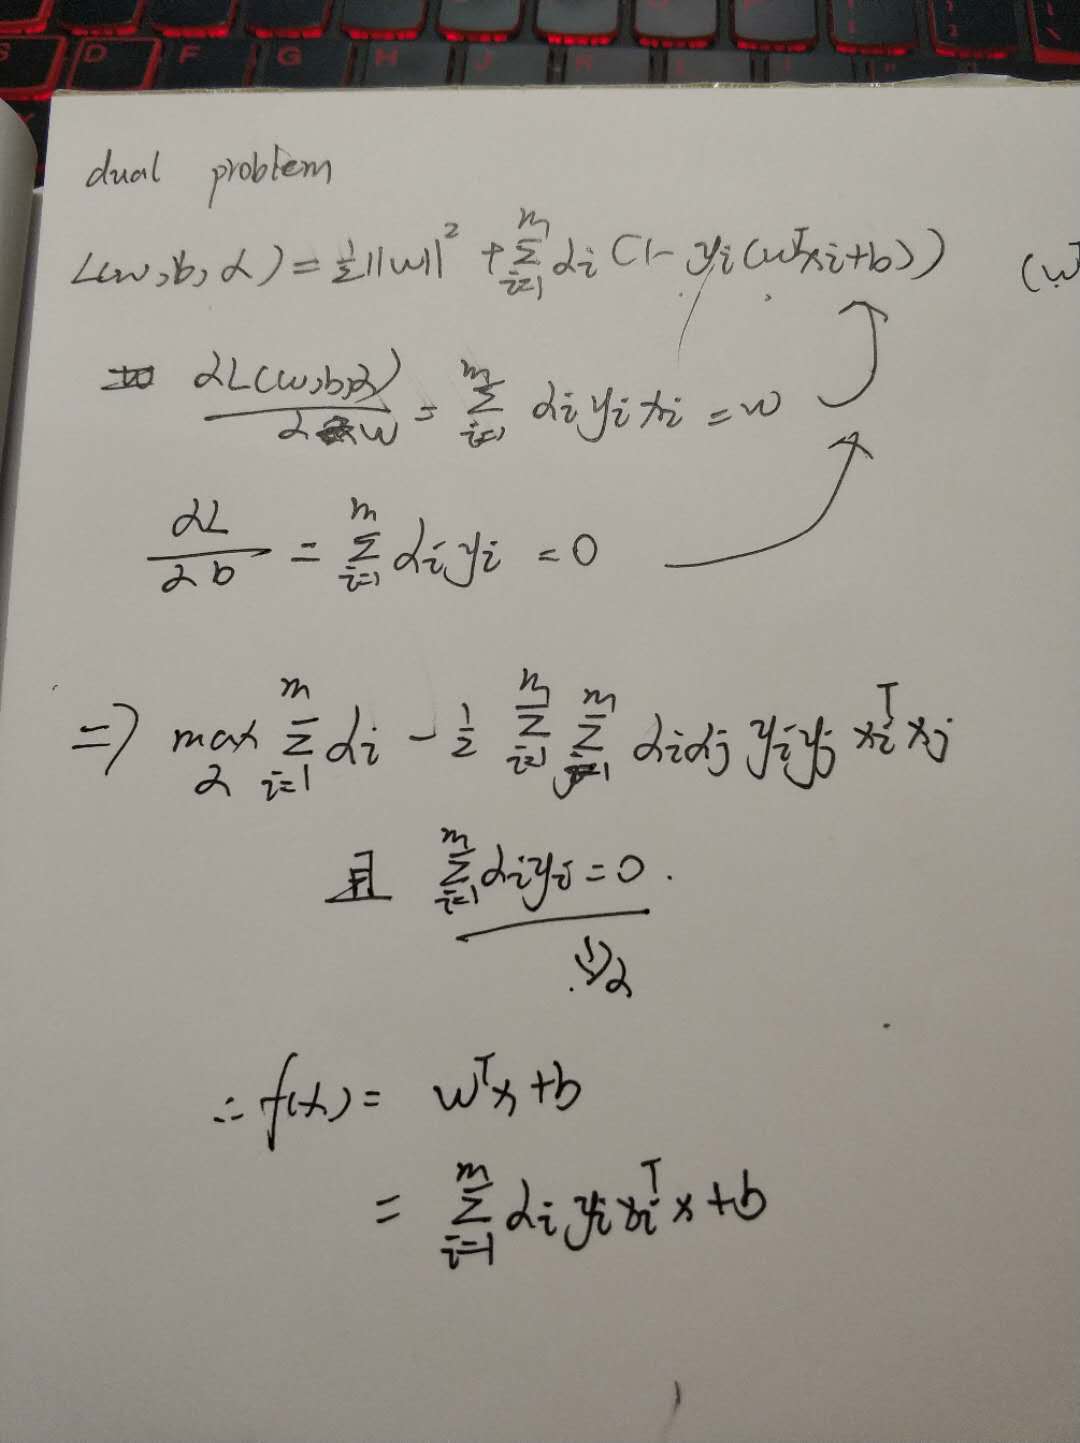 dual problem
L(w,b,α) = ½||w||² + Σᵢ₌₁ᵐ αᵢ (1- yᵢ(wᵀxᵢ+b)) (wᵀ
∂L(w,b,α)/∂w = Σᵢ₌₁ᵐ αᵢ yᵢ xᵢ = w
∂L/∂b = Σᵢ₌₁ᵐ αᵢ yᵢ = 0
=> max_α Σᵢ₌₁ᵐ αᵢ - ½ Σᵢ₌₁ᵐ Σⱼ₌₁ᵐ αᵢαⱼ yᵢyⱼ xᵢᵀxⱼ
且 Σᵢ₌₁ᵐ αᵢyᵢ = 0.
∴ f(x) = wᵀx + b
= Σᵢ₌₁ᵐ αᵢ yᵢ xᵢᵀ x + b